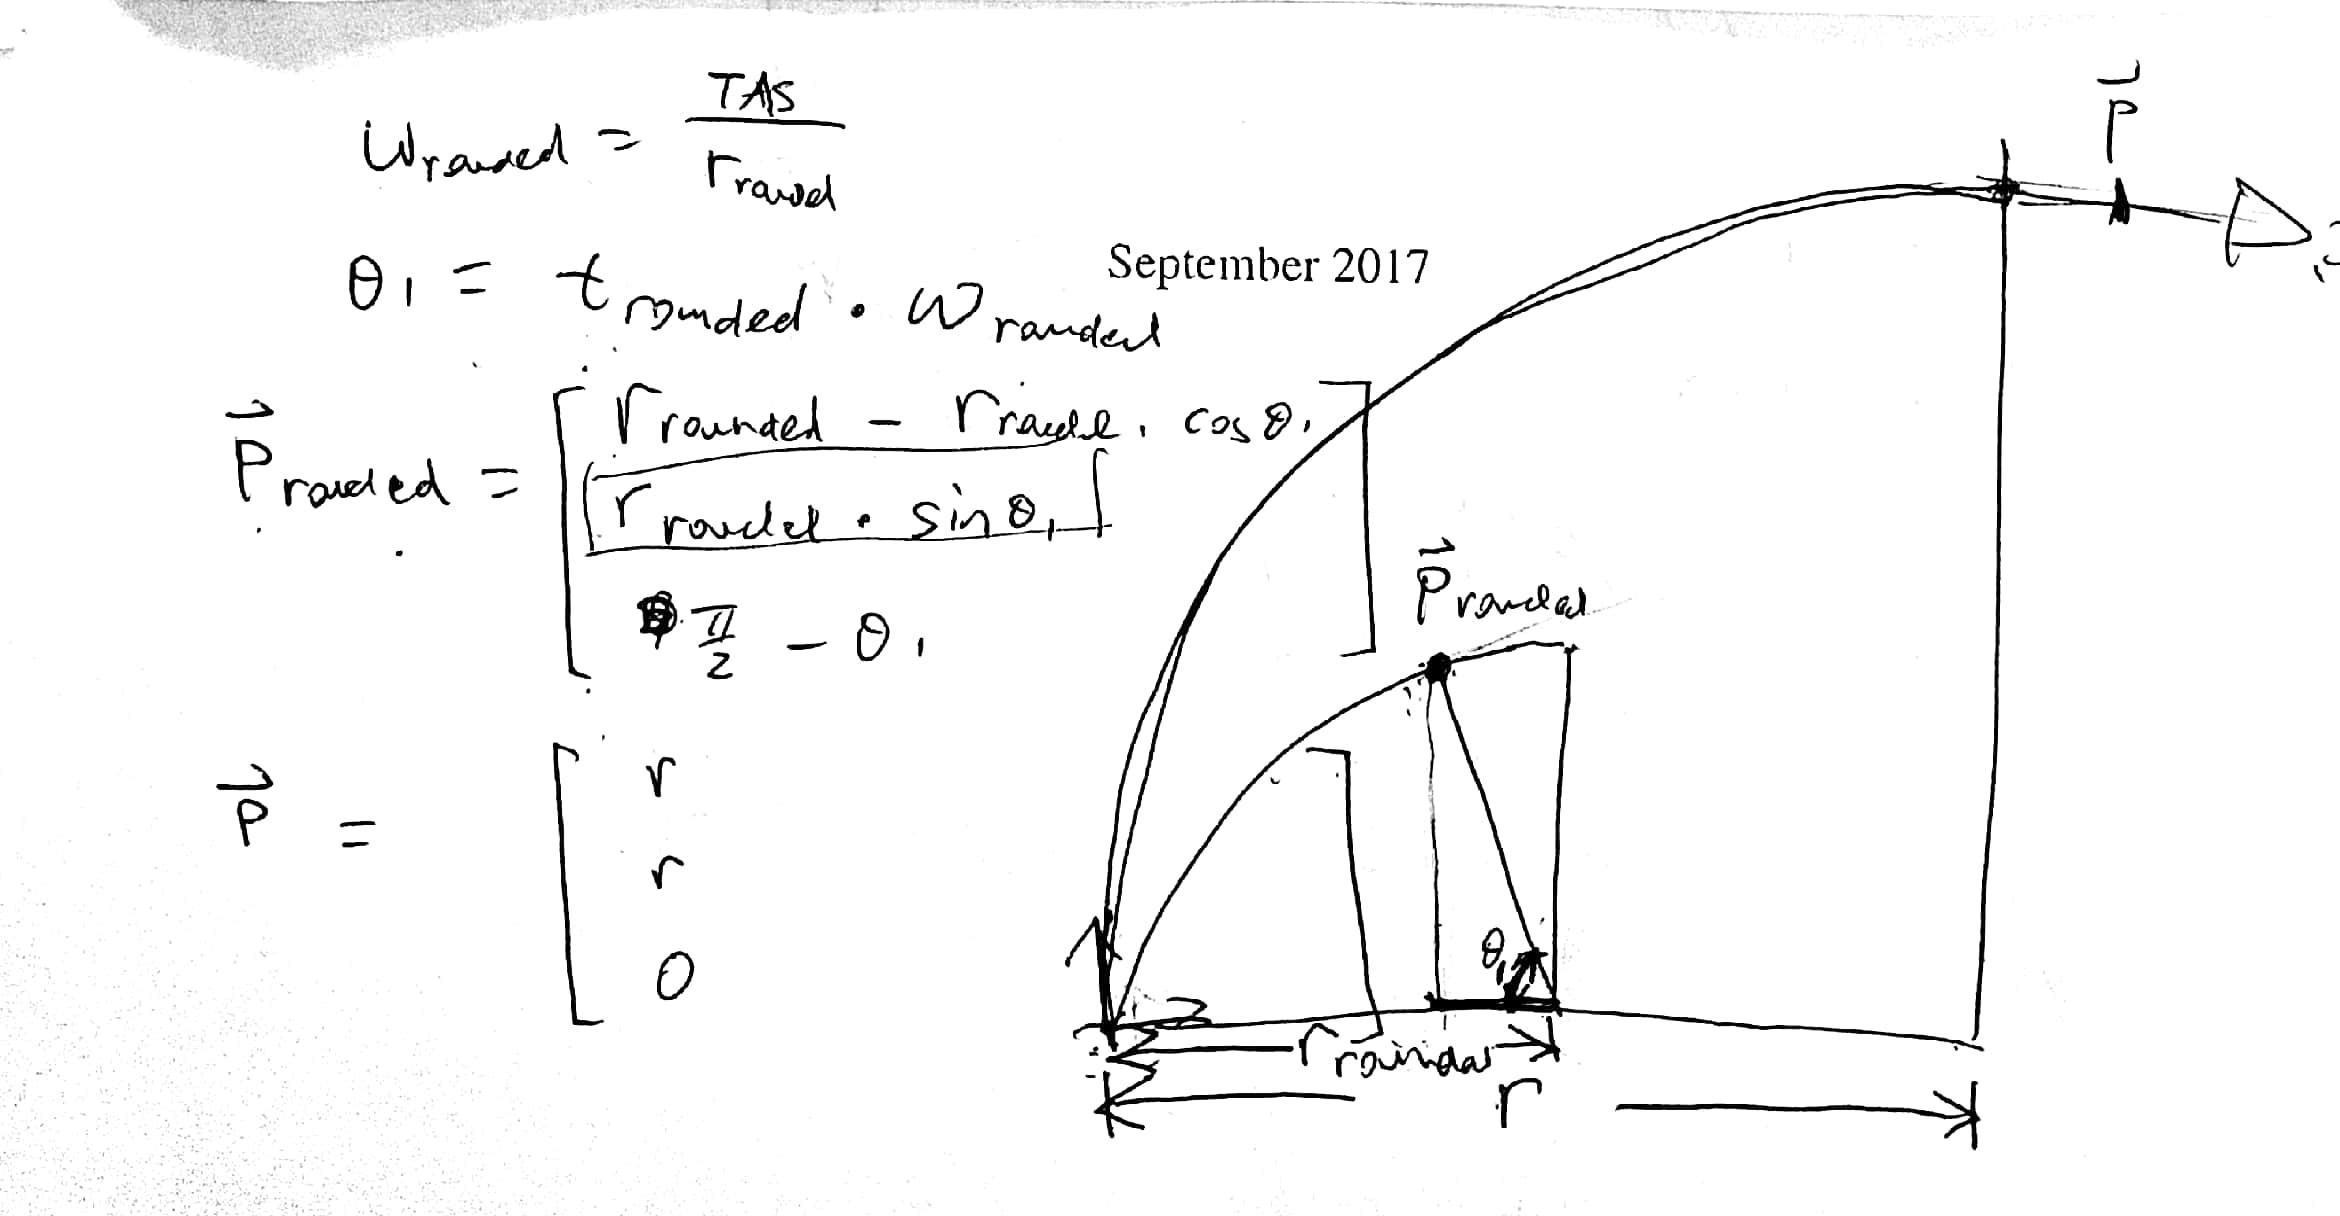 ω rounded = TAS / r rounded
September 2017
θ₁ = t rounded · ω rounded
P⃗ rounded = [ r rounded - r rounded · cos θ₁
r rounded · sin θ₁
π/2 - θ₁ ]
P⃗ = [ r
r
0 ]
P⃗
P⃗ rounded
θ₁
r rounded
r